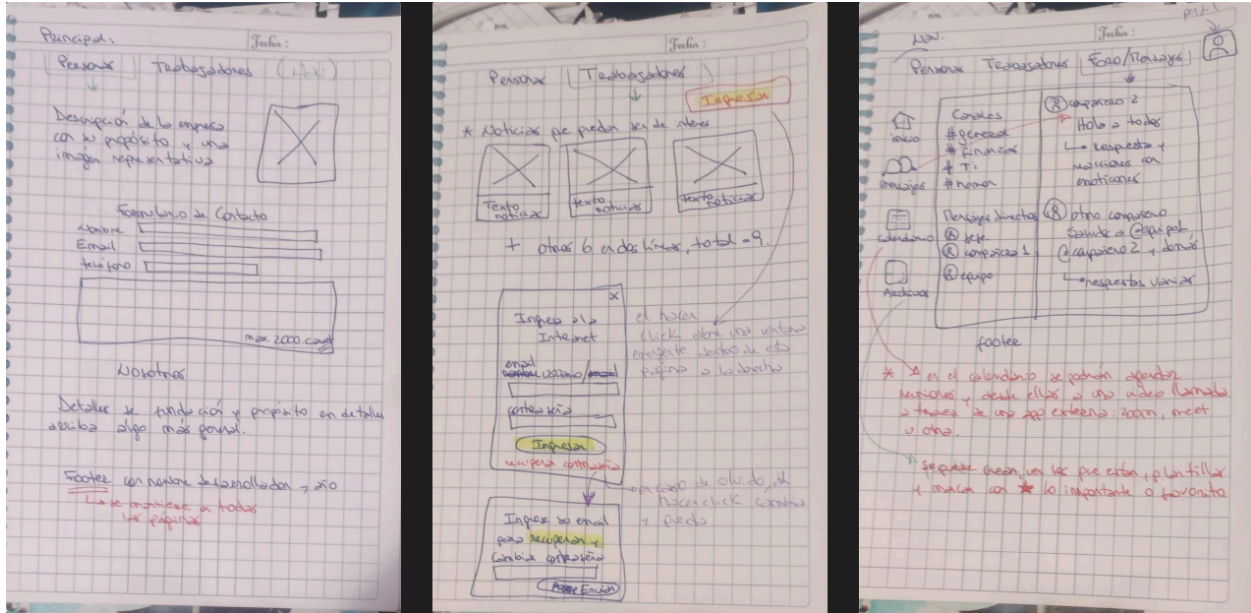 Principal:
Fecha:
Personas Trabajadores (Nav)
Descripción de la empresa
con su propósito y una
imagen representativa
Formulario de Contacto
Nombre
Email
teléfono
max. 2000 caract
Nosotros
Detalles de fundación y propósito en detalle
arriba algo más general.
Footer con nombre desarrollador, año
se mantiene en todas
las páginas
Fecha:
Personas Trabajadores
Ingresar
* Noticias que puedan ser de interés
Texto noticias
texto noticias
texto noticias
+ otras 6 en dos líneas, total = 9.
X
Ingreso a la
Internet
email
usuario/
contraseña
Ingresar
recuperar contraseña
al hacer
click, abre una ventana
emergente dentro de esta
página a la derecha
en caso de olvido, al
hacer click cambia
Ingrese su email
para recuperar y
cambiar contraseña
Enviar
Nav.
Fecha:
Personas Trabajadores Foro/Mensajes
inicio
mensajes
calendario
Archivos
Canales
#general
#finanzas
# Ti
#
Mensajes directos
jefe
compañero 1
equipo
compañero 2
Hola a todos
respuesta y
reacciones con
emoticones
otro compañero
Saludos a @equipo1
@compañero 2 y
respuestas varias
footer
* en el calendario se podrán agendar
reuniones y desde ellas a una video llamada
a traves de una app externa: zoom, meet
u otra.
* se puede crear, ver los que estan, plantillas
y marcar con ★ lo importante o favorito